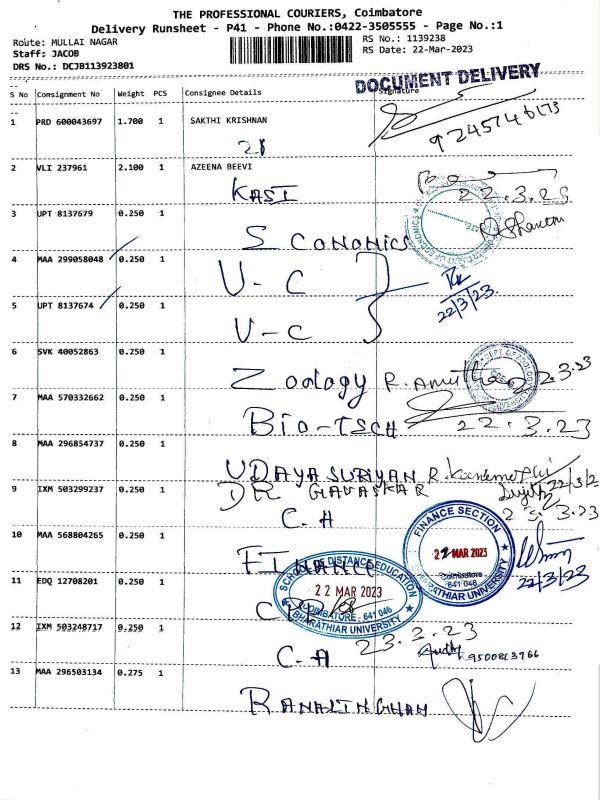 THE PROFESSIONAL COURIERS, Coimbatore
Delivery Runsheet - P41 - Phone No.:0422-3505555 - Page No.:1
Route: MULLAI NAGAR
RS No.: 1139238
Staff: JACOB
RS Date: 22-Mar-2023
DRS No.: DCJB113923801
DOCUMENT DELIVERY
S No Consignment No Weight PCS Consignee Details Signature
1 PRD 600043697 1.700 1 SAKTHI KRISHNAN
21
9245746173
2 VLI 237961 2.100 1 AZEENA BEEVI
KASI 22.3.23
3 UPT 8137679 0.250 1
S CONOMICS
4 MAA 299058048 0.250 1
U-C
22/3/23.
5 UPT 8137674 0.250 1
U-C
6 SVK 40052863 0.250 1
Zoology R. Amutha 22.3.23
7 MAA 570332662 0.250 1
BIO-TSCH 22.3.23
8 MAA 296854737 0.250 1
UDAYA SURIYAN
9 IXM 503299237 0.250 1
DR GAVASKAR
C.A
10 MAA 568804265 0.250 1
FINANCE
FINANCE SECTION
22 MAR 2023
Coimbatore
641 046
BHARATHIAR UNIVERSITY
22/3/23
11 EDQ 12708201 0.250 1
SCHOOL OF DISTANCE EDUCATION
22 MAR 2023
COIMBATORE - 641 046
BHARATHIAR UNIVERSITY
12 IXM 503248717 0.250 1
23.2.23
C.A
13 MAA 296503134 0.275 1
RANALINGHAM